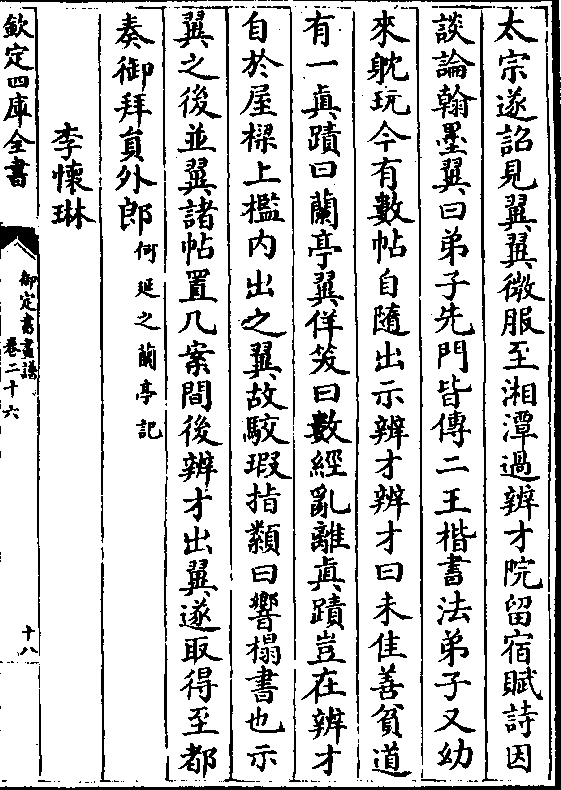 太宗遂詔見翼翼微服至湘潭過辨才院留宿賦詩因
談論翰墨翼曰弟子先門皆傳二王楷書法弟子又幼
來躭玩今有數帖自隨出示辨才辨才曰未佳善貧道
有一真蹟曰蘭亭翼佯笑曰數經亂離真蹟豈在辨才
自於屋樑上檻内出之翼故駮瑕指纇曰響搨書也示
翼之後並翼諸帖置几案間後辨才出翼遂取得至都
奏御拜員外郎何延之蘭亭記
李懷琳
欽定四庫全書
御定書畫譜
卷二十六
十八